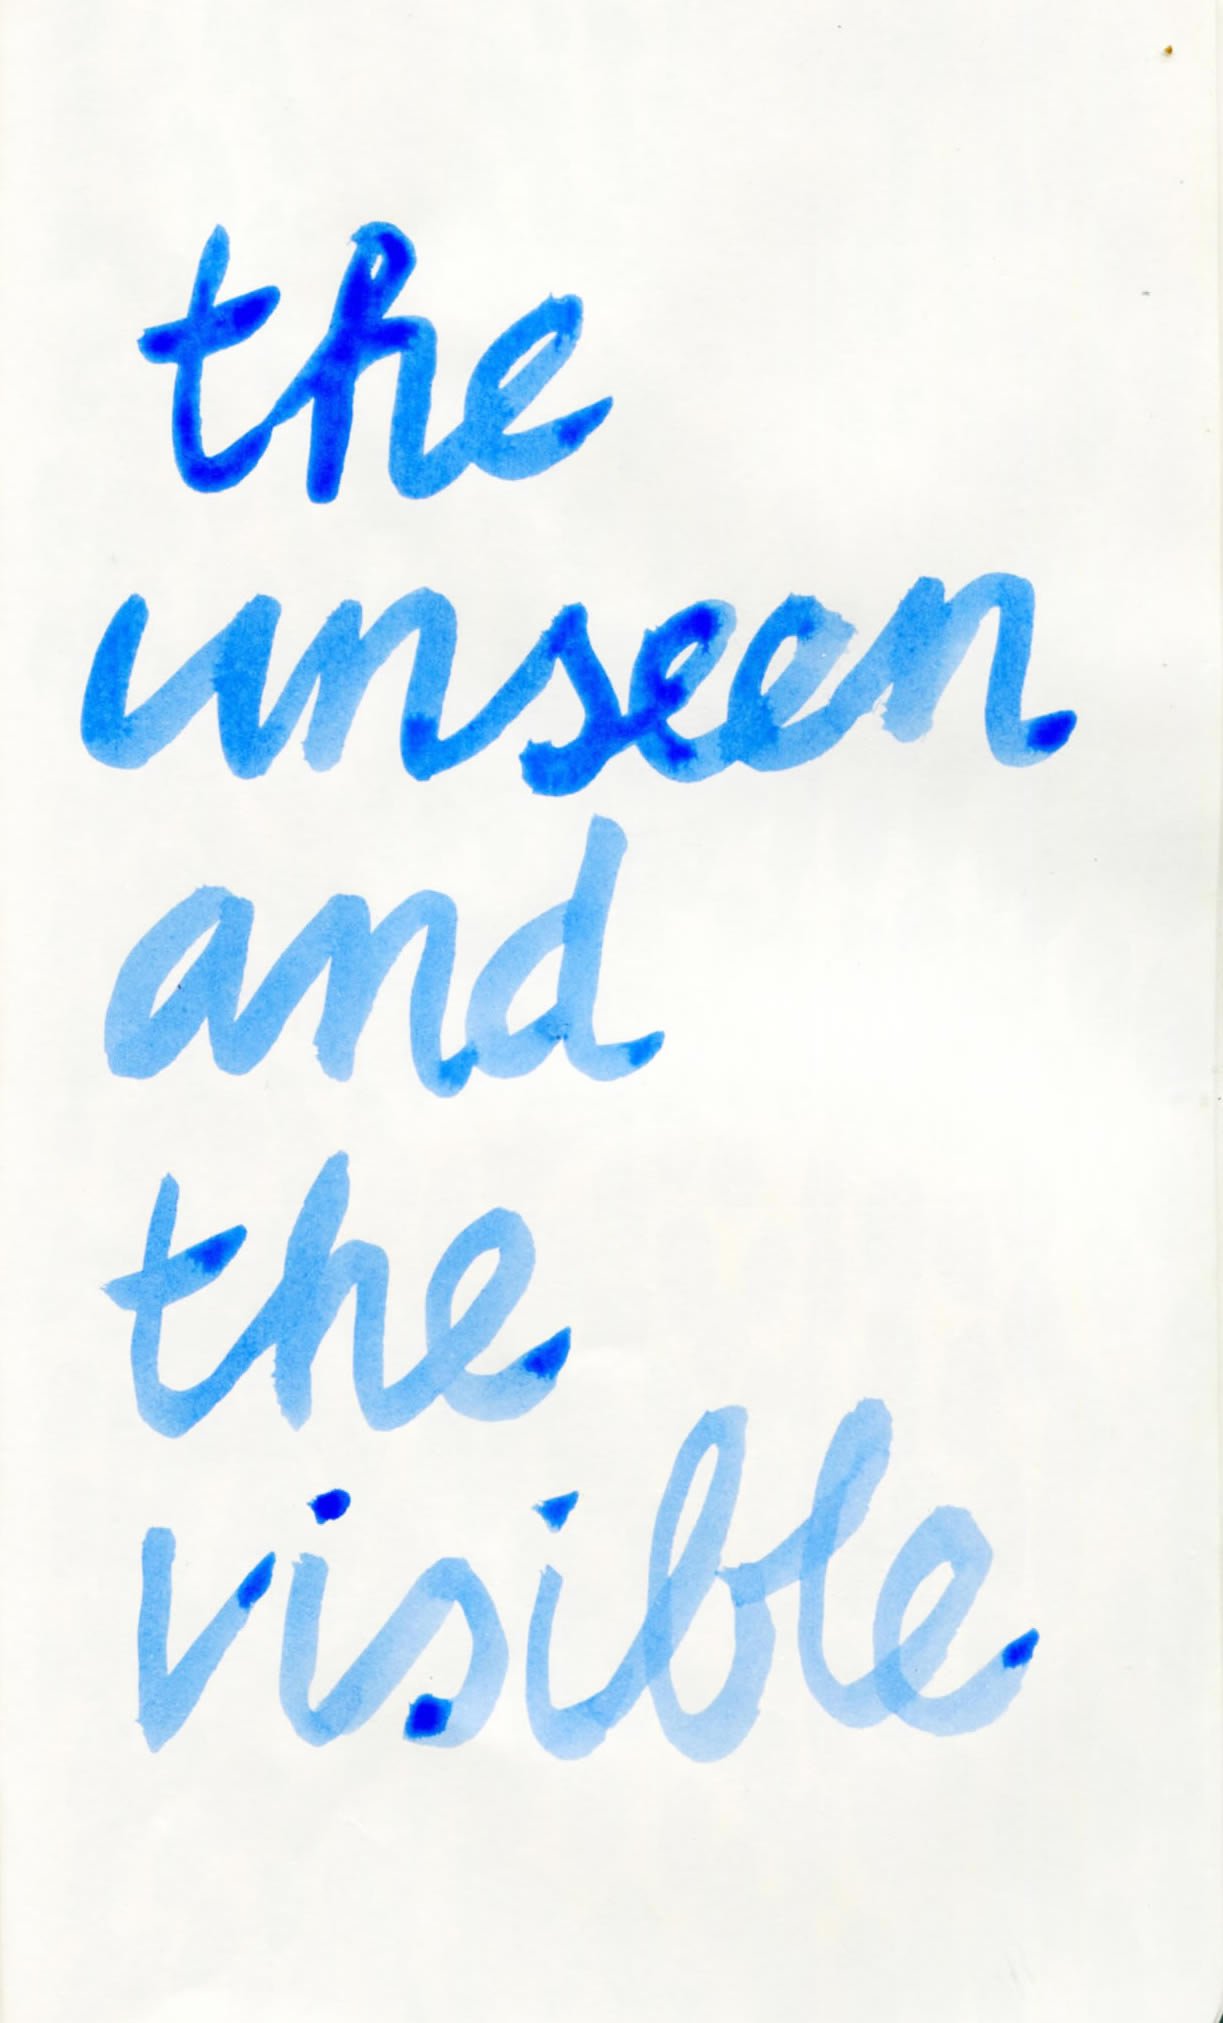 the
unseen
and
the
visible